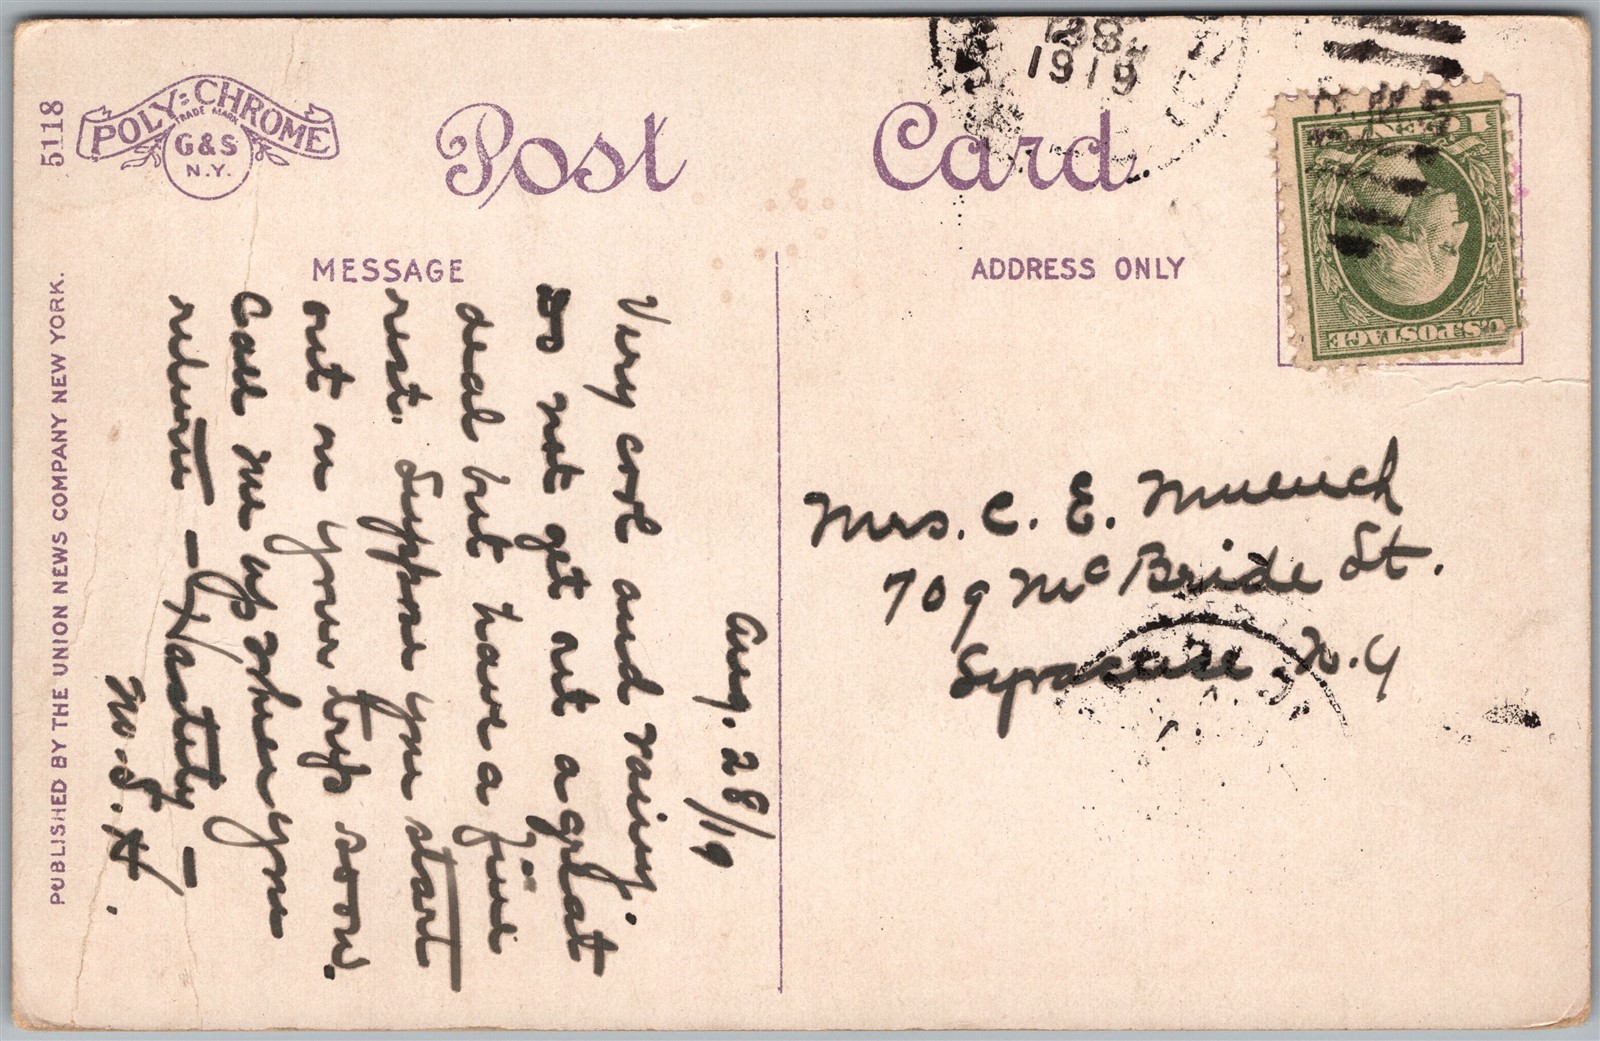 5118
POLY-CHROME
TRADE MARK
G&S
N.Y.
Post Card
28
1919
1 CENT 1
U.S. POSTAGE
MESSAGE
ADDRESS ONLY
PUBLISHED BY THE UNION NEWS COMPANY NEW YORK.
Aug. 28/19
Very cool and rainy.
Do not get out a great
deal but have a fine
rest. Suppose you start
out on your trip soon.
Call me up when you
return — Hastily —
M. S. H.
Mrs. C. E. Muench
709 McBride St.
Syracuse, N.Y